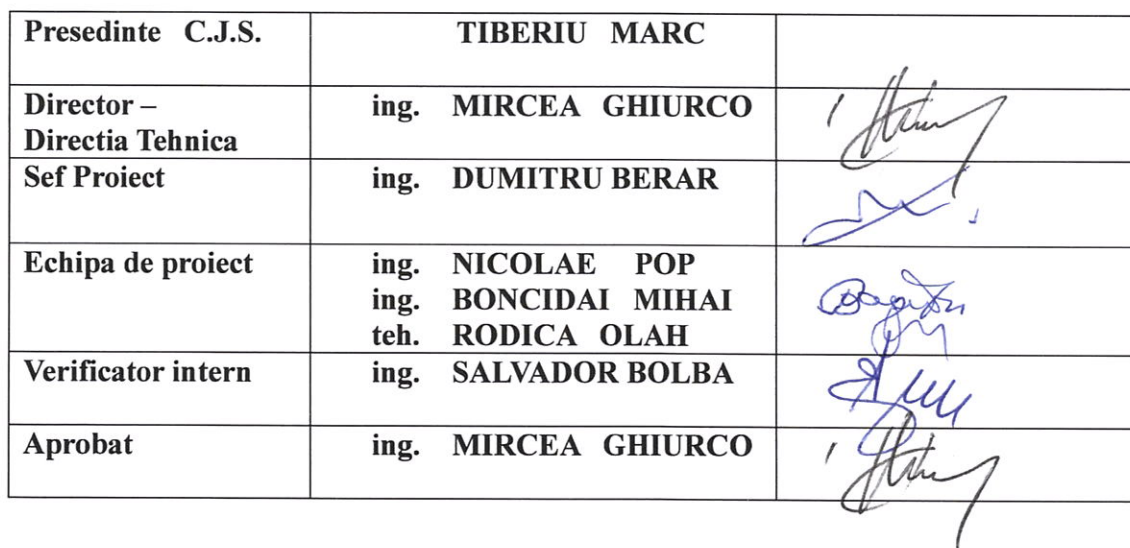 Presedinte C.J.S. TIBERIU MARC
Director – ing. MIRCEA GHIURCO
Directia Tehnica
Sef Proiect ing. DUMITRU BERAR
Echipa de proiect ing. NICOLAE POP
ing. BONCIDAI MIHAI
teh. RODICA OLAH
Verificator intern ing. SALVADOR BOLBA
Aprobat ing. MIRCEA GHIURCO